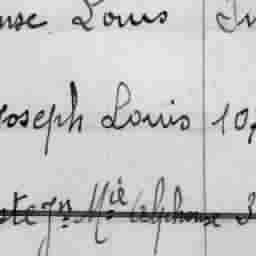 nse Louis
Joseph Louis 10
Mie Alphonse 3